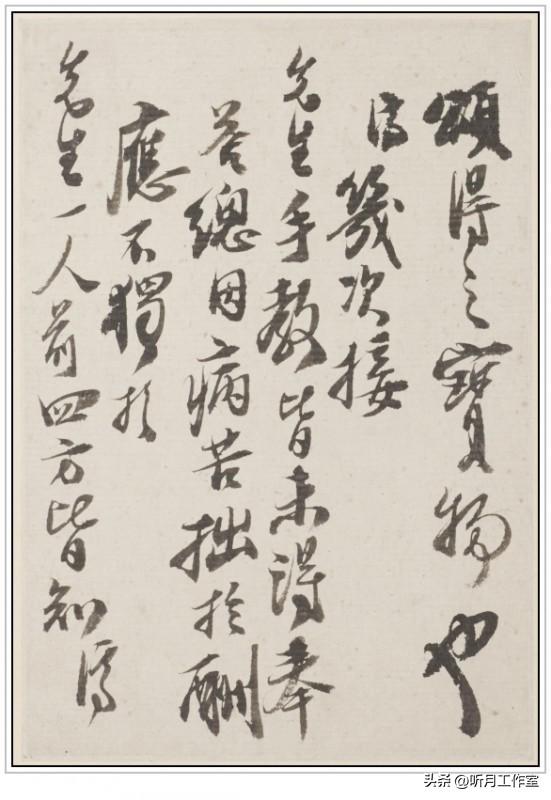 頌得之寶物也
濟幾次接
先生手教皆未得奉
答總因病苦拙於酬
應不獨於
先生一人前四方皆知濟
头条 @听月工作室